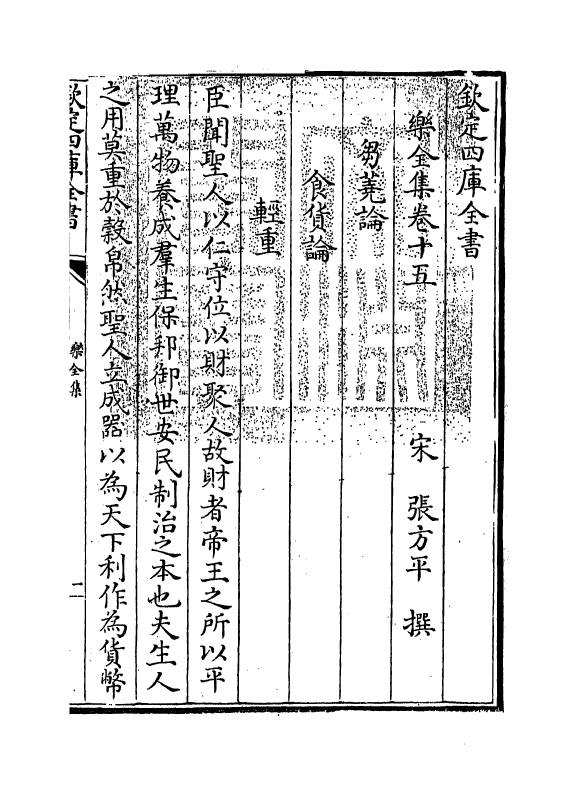 欽定四庫全書
樂全集卷十五
宋 張方平 撰
芻蕘論
食貨論
輕重
臣聞聖人以仁守位以財聚人故財者帝王之所以平
理萬物養成羣生保邦御世安民制治之本也夫生人
之用莫重於穀帛然聖人立成器以為天下利作為貨幣
欽定四庫全書
樂全集
二